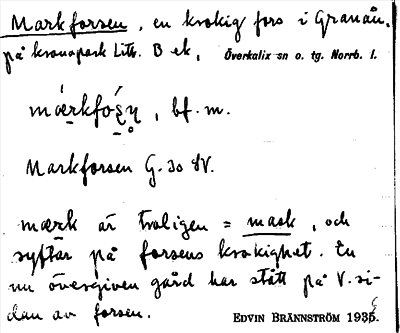 Markforsen, en krokig fors i Granån,
på kronopark Litt. B ek, Överkalix sn o. tg. Norrb. l.
bf. m.
Markforsen G. 30 SV.
mærk är troligen = mask, och
syftar på forsens krokighet. En
nu övergiven gård har stått på V. si-
dan av forsen. EDVIN BRÄNNSTRÖM 1936.